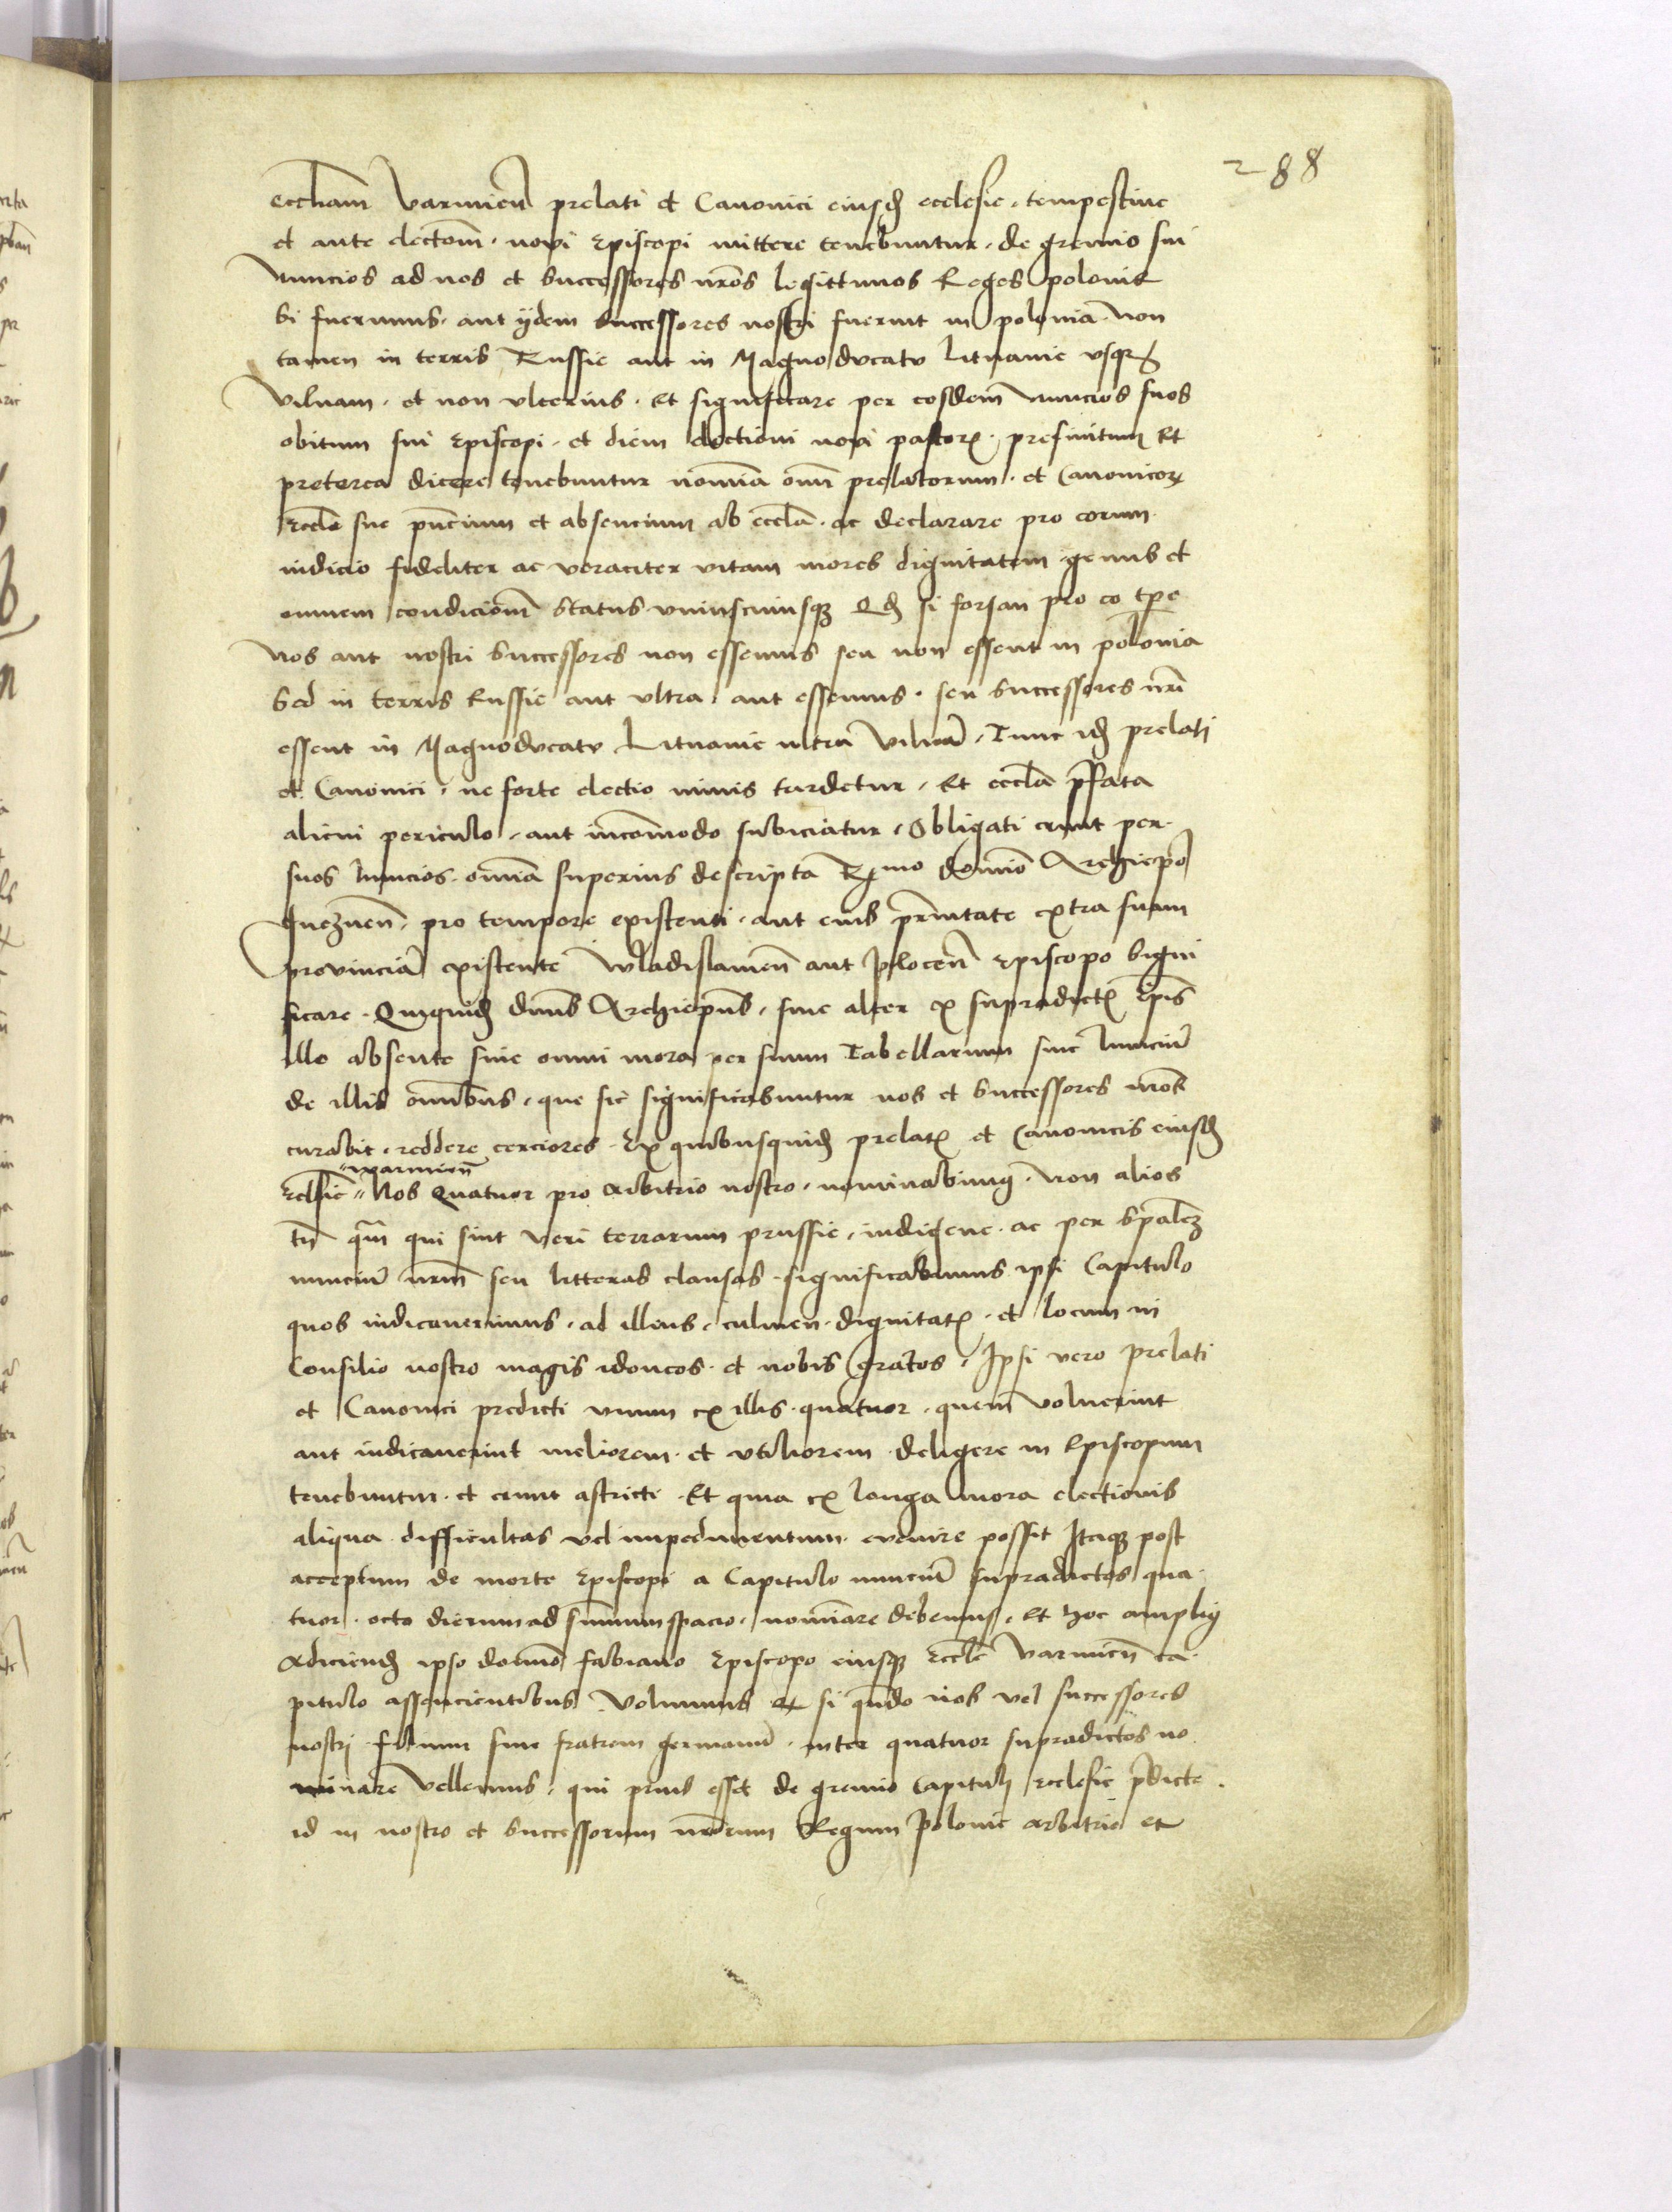 288
eccliam Varmien̄ prelati et Canonici eiusd ecclesie, tempestiue
et ante electōm, novi Episcopi mittere tenebuntur, de gremio sui
Nuncios ad nos et Successores nr̄os legittimos Reges polonie
Si fuerimus, aut ijdem Successores nostri fuerint in polonia. Non
tamen in terris Russie aut in Magnoducatu Lituanie vsqꝫ
Vilnam, et non vlterius. Et significare per eosdem Nuncios suos
obitum sui Episcopi, et diem electioni novi pastorꝭ, prefinitum Et
preterea dicere tenebuntur nomīa omn̄ prelatorum, et Canonicorꝝ
Eccle sue pn̄cium et absencium ab eccla. ac declarare pro eorum
iudicio fideliter ac veraciter vitam mores dignitatem, genus et
omnem condiciōm status vniuscuiusqꝫ Qd si forsan pro eo tp̄e
Nos aut nostri Successores non essemus seu non essent in polonia
Sed in terris Russie aut vltra, aut essemus, seu Successores nr̄i
essent in Magnoducatu Lituanie ultra Vilnā, Tunc id prelati
et Canonici, ne forte electio nimis tardetur, Et eccla p̄fata
alicui periculo, aut incōmodo subiciatur, Obligati erunt per
suos Nuncios, om̄ia superius descripta Rmo domīo Archiepo
Gnezneñ, pro tempore existenti, aut eius p̄rmitate extra suam
provinciā existente Wladislauien̄ aut Plocen̄ Episcopo Signi
ficare. Quiquid dnus Archiepus, siue alter ex supradictꝭ Epis
illo absente sine omni mora per suum Tabellarium siue Nunciū
de illis omībus, que sic significabuntur nos et Successores nr̄os
curabit, reddere cerciores. Ex quibusquid prelatꝭ et Canonicis eiusd
warmien̄
Ecclsie " Nos Quatuor pro arbitrio nostro, nominabimꝰ. Non alios
tn̄ qm̄ qui sint veri terrarum prussie, indigene. ac per Spalēꝫ
nunciū nr̄m seu litteras clausas, significabimus ipsi Capitulo
quos iudicauerimus, ad illius, culmen dignitatꝭ, et locum in
Consilio nostro magis idoneos, et nobis gratos, Ipsi vero prelati
et Canonici predicti vnum ex illis, quatuor, quem voluerint
aut iudicauerint meliorem, et vtiliorem, deligere in Episcopum
tenebuntur, et erunt astricti. Et quia ex longa mora electionis
aliqua difficultas vel impedimentum, evenire possit Itaqꝫ post
acceptum de morte Episcopi a Capitulo nunciū supradictos qua
tuor, octo dierum ad summum spacio, nomīare debemus, Et hoc ampliꝰ
Adiciend ipso domīo fabiano Episcopo eiusqꝫ Eccle Varmien̄ ca
pitulo assencientibus Volumus Et si qn̄do nos vel successores
nostri filium siue fratrem germanū, inter quatuor supradictos no
minare Vellemus, qui prius esset de gremio Capituli ecclesie p̄dicte.
id in nostro et Successorum nr̄orum Regum Polonie arbitrio et